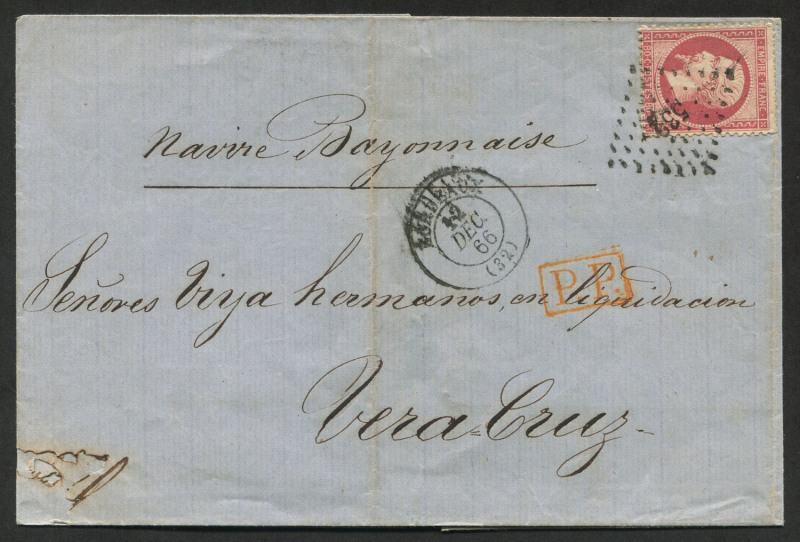 EMPIRE FRANC
532
Navire Bayonnaise
BORDEAUX
12
DEC.
66
(32)
P.P.
Señores Viya hermanos, en liquidacion
Vera=Cruz-